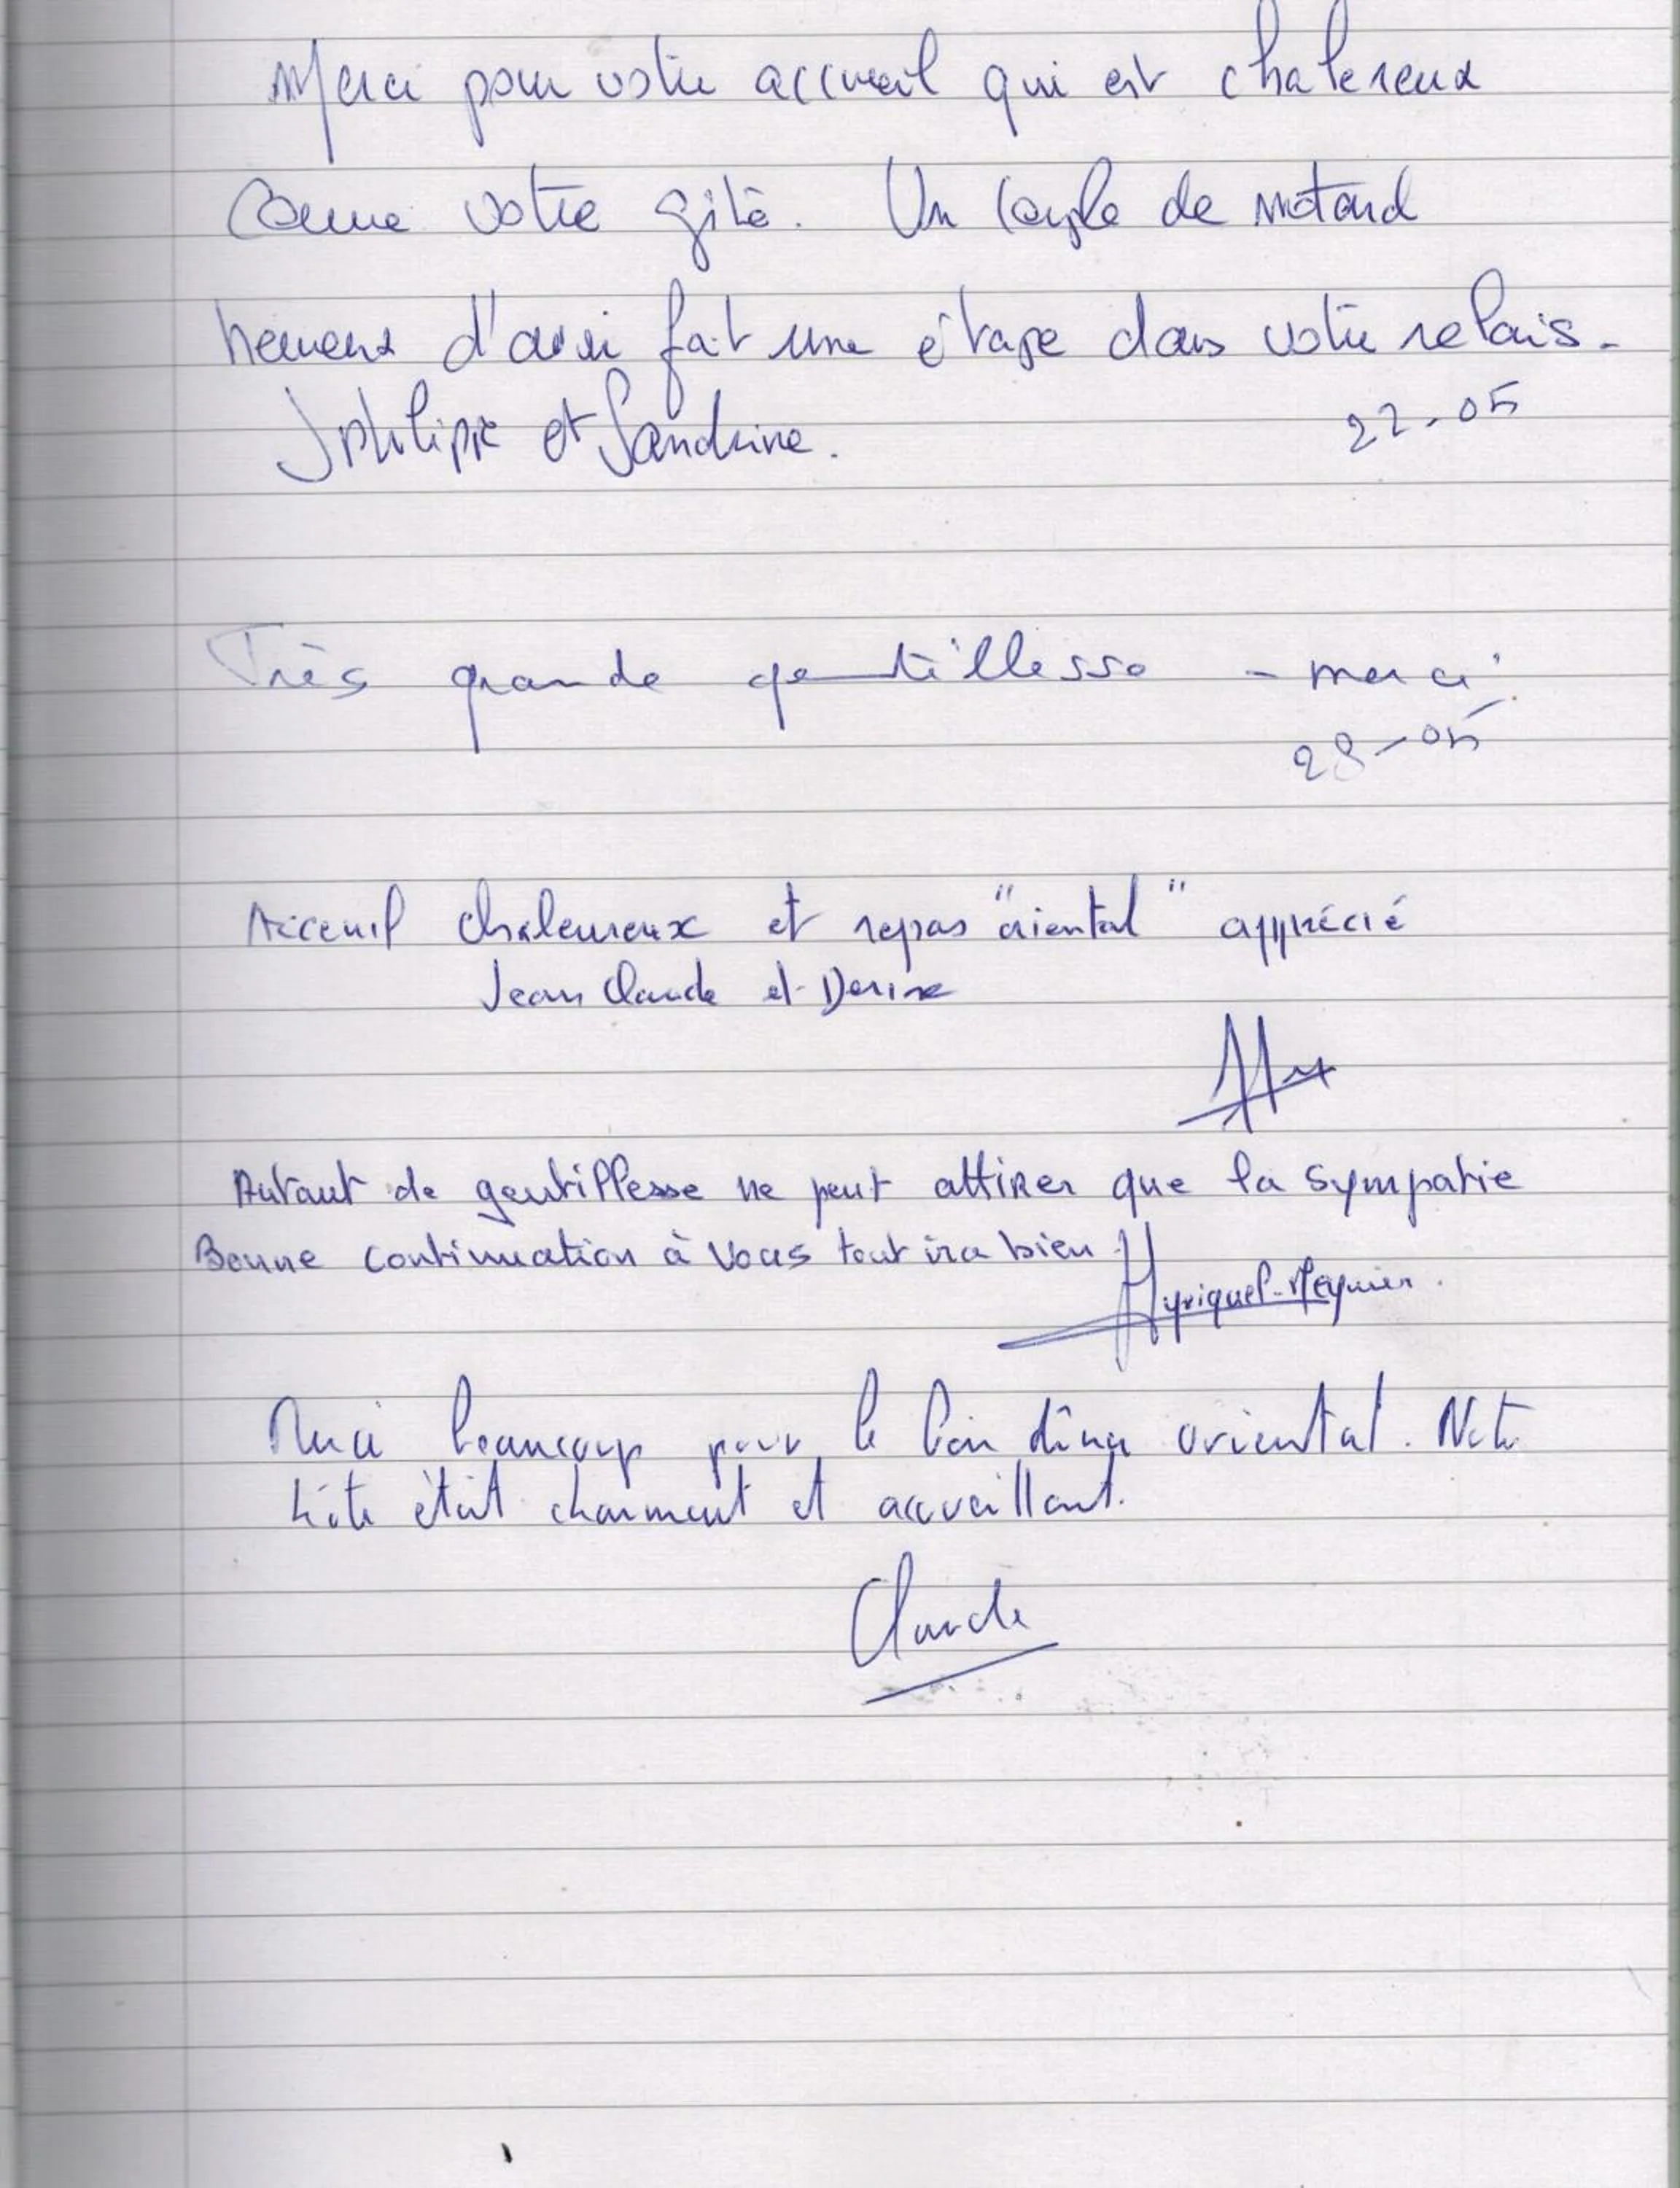 Merci pour votre accueil qui est chalereux
Comme votre gîte. Un Couple de motard
heureux d'avoir fait une étape dans votre relais.
JPhilippe et Sandrine. 22-05
Très grande gentillesse - merci
28-05
Acceuil chaleureux et repas "oriental" apprécié
Jean Claude et Denise
Autant de gentillesse ne peut attirer que la Sympatie
Bonne continuation à Vous tout ira bien !
Merci beaucoup pour le bon dîner oriental. Notre
hôte était charmant et accueillant.
Claude